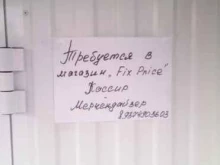 Требуется в
магазин „Fix Price"
Кассир
Мерчендайзер